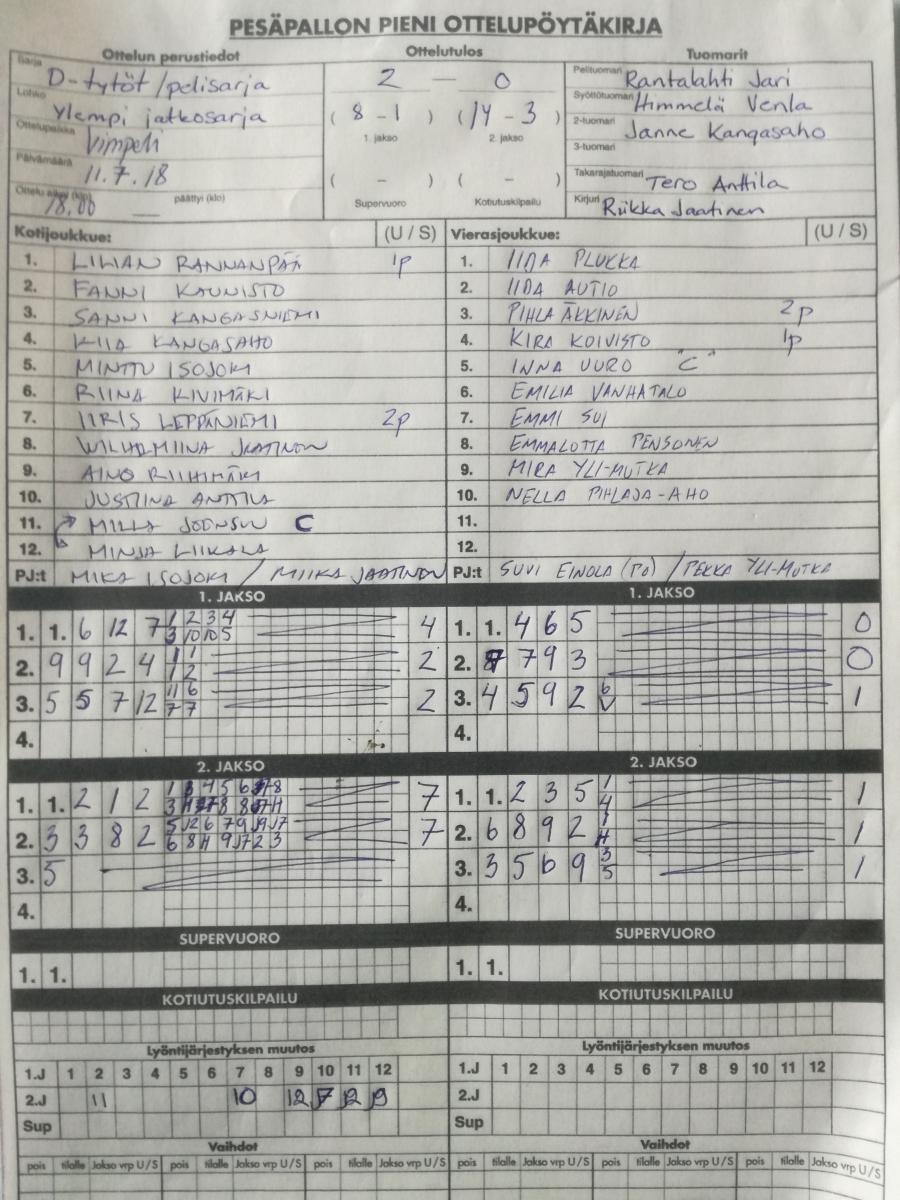 PESÄPALLON PIENI OTTELUPÖYTÄKIRJA
Ottelun perustiedot
Sarja D-tytöt/pelisarja
Lohko Ylempi jatkosarja
Ottelupaikka Vimpeli
Päivämäärä 11.7.18
Ottelu alkoi (klo) 18.00 päättyi (klo)
Ottelutulos
2 — 0
(8-1) (14-3)
1. jakso 2. jakso
( - ) ( - )
Supervuoro Kotiutuskilpailu
Tuomarit
Pelituomari Rantalahti Jari
Syöttötuomari Himmelä Venla
2-tuomari Janne Kangasaho
3-tuomari
Takarajatuomari Tero Anttila
Kirjuri Riikka Jaatinen
Kotijoukkue: (U / S)
1. LILIAN RANNANPÄÄ 1p
2. FANNI KAUNISTO
3. SANNI KANGASNIEMI
4. KIIA KANGASAHO
5. MINTTU ISOJOKI
6. RIINA KIVIMÄKI
7. IIRIS LEPPÄNIEMI 2p
8. WILHELMIINA JAATINEN
9. AINO RIIHIMÄKI
10. JUSTIINA ANTTILA
11. MILLA JOENSUU C
12. MINJA LIIKALA
PJ:t MIKA ISOJOKI / MIIKA JAATINEN
Vierasjoukkue: (U / S)
1. IIDA PLUKKA
2. IIDA AUTIO
3. PIHLA ÄKKINEN 2p
4. KIRA KOIVISTO 1p
5. INNA UURO "C"
6. EMILIA VANHATALO
7. EMMI SUI
8. EMMALOTTA PENSONEN
9. MIRA YLI-MUTKA
10. NELLA PIHLAJA-AHO
11.
12.
PJ:t SUVI EINOLA (PJ) / PEKKA YLI-MUTKA
1. JAKSO
1. 1. 6 12 7 1 2 3 4 4
3 10 10 5
2. 9 9 2 4 1 1 2
1 2
3. 5 5 7 12 11 6 2
7 7
4.
1. JAKSO
1. 1. 4 6 5 0
2. 7 9 3 0
3. 4 5 9 2 1
4.
2. JAKSO
1. 1. 2 1 2 7
2. 3 3 8 2 7
3. 5 -
4.
2. JAKSO
1. 1. 2 3 5 1 1
4
2. 6 8 9 2 1
3. 3 5 6 9 3 1
5
4.
SUPERVUORO
1. 1.
SUPERVUORO
1. 1.
KOTIUTUSKILPAILU
KOTIUTUSKILPAILU
Lyöntijärjestyksen muutos
1.J 1 2 3 4 5 6 7 8 9 10 11 12
2.J 11 10 12 7 12 9
Sup
Lyöntijärjestyksen muutos
1.J 1 2 3 4 5 6 7 8 9 10 11 12
2.J
Sup
Vaihdot
pois tilalle Jakso vrp U/S pois tilalle Jakso vrp U/S pois tilalle Jakso vrp U/S
Vaihdot
pois tilalle Jakso vrp U/S pois tilalle Jakso vrp U/S pois tilalle Jakso vrp U/S